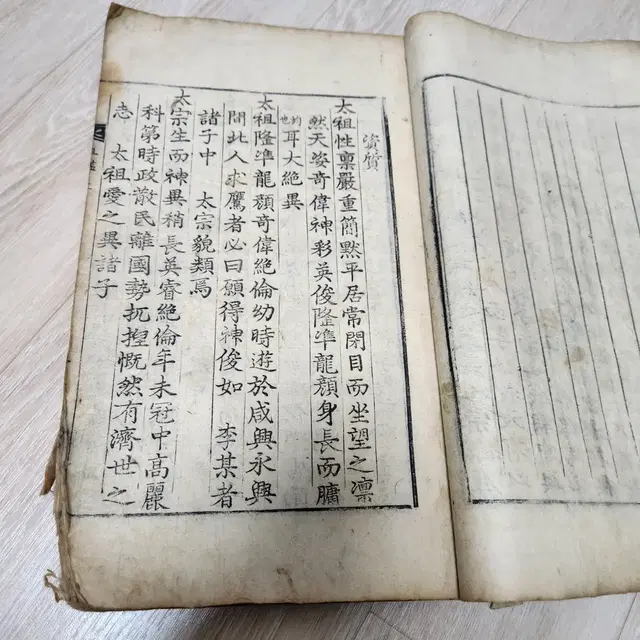 資質
太祖性禀嚴重簡默平居常閉目而坐望之凛
然天姿奇偉神彩英俊隆準龍顔身長而𦟛
直也耳大絶異
太祖隆準龍顔奇偉絶倫幼時遊於咸興永興
間北人求鷹者必曰願得神俊如 李某者
諸子中 太宗貌類焉
太宗生而神異稍長英睿絶倫年未冠中高麗
科第時政散民離國勢扤揑慨然有濟世之
志 太祖愛之異諸子